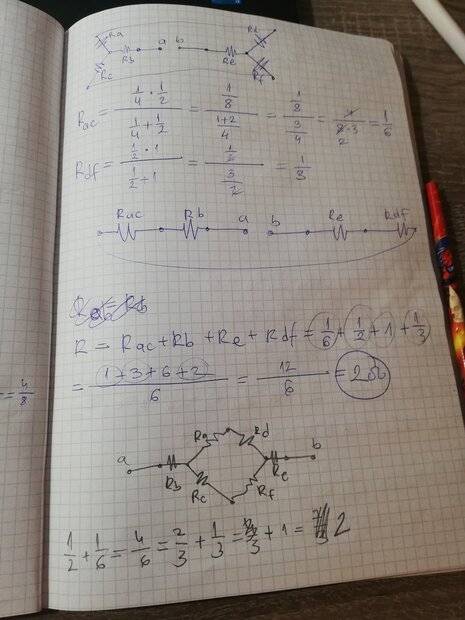 Ra
Rb a b Re Rd
Rc Rf
Rac = (1/4 · 1/2)/(1/4 + 1/2) = (1/8)/((1+2)/4) = (1/8)/(3/4) = 1/(2·3) = 1/6
Rdf = (1/2 · 1)/(1/2 + 1) = (1/2)/(3/2) = 1/3
Rac Rb a b Re Rdf
R = Rac + Rb + Re + Rdf = 1/6 + 1/2 + 1 + 1/3
= (1+3+6+2)/6 = 12/6 = 2Ω
= 4/8
a Rb Ra Rd Re b
Rc Rf
1/2 + 1/6 = 4/6 = 2/3 + 1/3 = 3/3 + 1 = 2